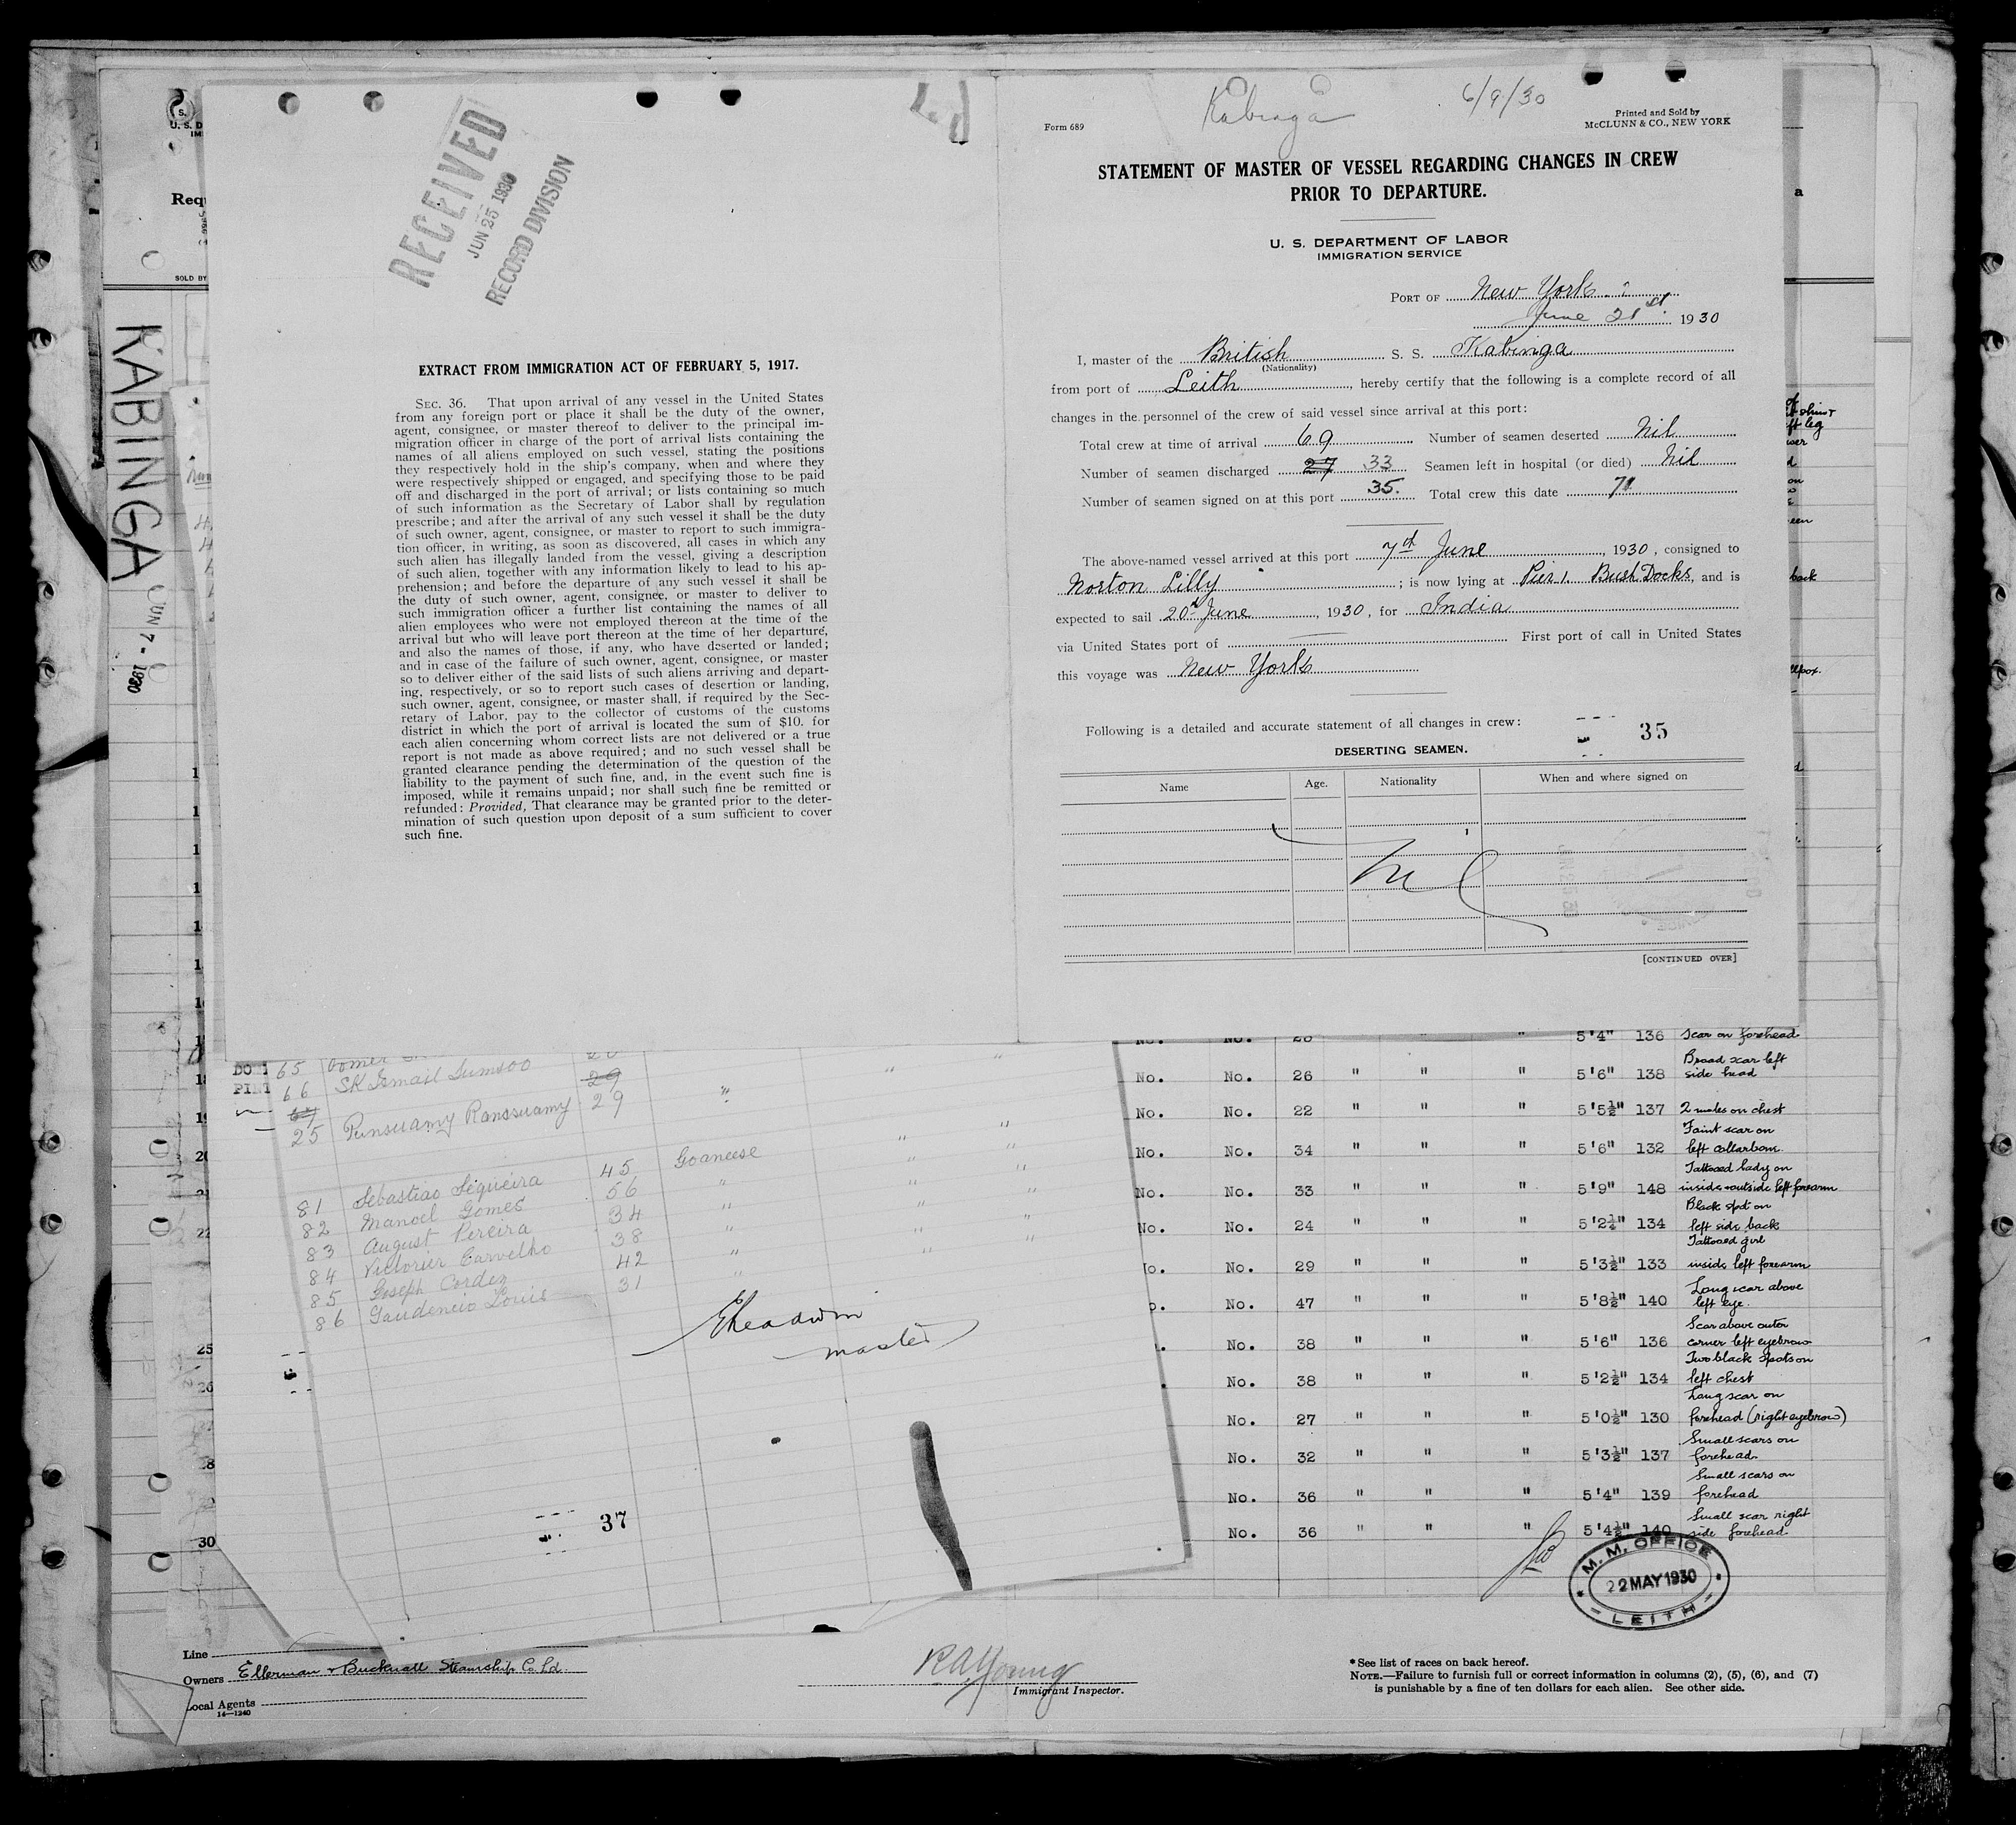 RECEIVED
JUN 25 1930
RECORD DIVISION
EXTRACT FROM IMMIGRATION ACT OF FEBRUARY 5, 1917.
SEC. 36. That upon arrival of any vessel in the United States
from any foreign port or place it shall be the duty of the owner,
agent, consignee, or master thereof to deliver to the principal im-
migration officer in charge of the port of arrival lists containing the
names of all aliens employed on such vessel, stating the positions
they respectively hold in the ship's company, when and where they
were respectively shipped or engaged, and specifying those to be paid
off and discharged in the port of arrival; or lists containing so much
of such information as the Secretary of Labor shall by regulation
prescribe; and after the arrival of any such vessel it shall be the duty
of such owner, agent, consignee, or master to report to such immigra-
tion officer, in writing, as soon as discovered, all cases in which any
such alien has illegally landed from the vessel, giving a description
of such alien, together with any information likely to lead to his ap-
prehension; and before the departure of any such vessel it shall be
the duty of such owner, agent, consignee, or master to deliver to
such immigration officer a further list containing the names of all
alien employees who were not employed thereon at the time of the
arrival but who will leave port thereon at the time of her departure,
and also the names of those, if any, who have deserted or landed;
and in case of the failure of such owner, agent, consignee, or master
so to deliver either of the said lists of such aliens arriving and depart-
ing, respectively, or so to report such cases of desertion or landing,
such owner, agent, consignee, or master shall, if required by the Sec-
retary of Labor, pay to the collector of customs of the customs
district in which the port of arrival is located the sum of $10. for
each alien concerning whom correct lists are not delivered or a true
report is not made as above required; and no such vessel shall be
granted clearance pending the determination of the question of the
liability to the payment of such fine, and, in the event such fine is
imposed, while it remains unpaid; nor shall such fine be remitted or
refunded: Provided, That clearance may be granted prior to the deter-
mination of such question upon deposit of a sum sufficient to cover
such fine.
KABINGA
JUN 7 - 1930
Kabinga 6/9/30
Form 689
Printed and Sold by
McCLUNN & CO., NEW YORK
STATEMENT OF MASTER OF VESSEL REGARDING CHANGES IN CREW
PRIOR TO DEPARTURE.
U. S. DEPARTMENT OF LABOR
IMMIGRATION SERVICE
PORT OF New York
June 21st 1930
I, master of the British S. S. Kabinga
(Nationality)
from port of Leith, hereby certify that the following is a complete record of all
changes in the personnel of the crew of said vessel since arrival at this port:
Total crew at time of arrival 69 Number of seamen deserted Nil
Number of seamen discharged 27 33 Seamen left in hospital (or died) Nil
Number of seamen signed on at this port 35. Total crew this date 71
The above-named vessel arrived at this port 7th June, 1930, consigned to
Norton Lilly; is now lying at Pier 1. Bush Docks, and is
expected to sail 20th June, 1930, for India
via United States port of First port of call in United States
this voyage was New York
Following is a detailed and accurate statement of all changes in crew: 35
DESERTING SEAMEN.
Name Age. Nationality When and where signed on
Nil
[CONTINUED OVER]
65 Oomer
66 SK Ismail Jumsoo 29
67
25 Punsuamy Ranssuamy 29 "
81 Sebastiao Sequeira 45 Goaneese " "
82 Manoel Gomes 56 " " "
83 August Pereira 34 " " "
84 Victorier Carvelho 38 " " "
85 Joseph Cordez 42 " " "
86 Gaudencio Louis 31 "
master
37
5'4" 136 Scar on forehead
No. No. 26 " " " 5'6" 138 Broad scar left side head
No. No. 22 " " " 5'5½" 137 2 moles on chest
No. No. 34 " " " 5'6" 132 Faint scar on left collarbone.
No. No. 33 " " " 5'9" 148 Tattooed lady on inside & outside left forearm
No. No. 24 " " " 5'2¼" 134 Black spot on left side back
No. No. 29 " " " 5'3½" 133 Tattooed girl inside left forearm
No. 47 " " " 5'8½" 140 Long scar above left eye.
No. 38 " " " 5'6" 136 Scar above outer corner left eyebrow
No. 38 " " " 5'2½" 134 Two black spots on left chest
No. 27 " " " 5'0½" 130 Long scar on forehead (right eyebrow)
No. 32 " " " 5'3½" 137 Small scars on forehead
No. 36 " " " 5'4" 139 Small scars on forehead
No. 36 " " " 5'4½" 140 Small scar right side forehead
M. M. OFFICE
22 MAY 1930
LEITH
Line
Owners Ellerman & Bucknall Steamship Co. Ld.
Local Agents
14—1240
R A Young
Immigrant Inspector.
*See list of races on back hereof.
NOTE.—Failure to furnish full or correct information in columns (2), (5), (6), and (7)
is punishable by a fine of ten dollars for each alien. See other side.